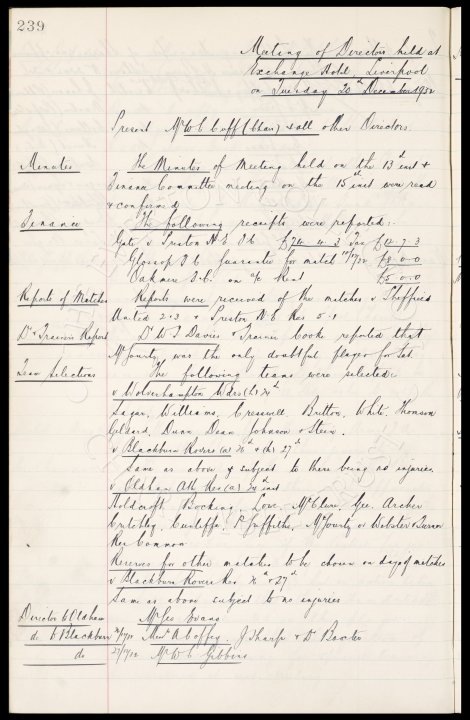 239
Meeting of Directors held at
Exchange Hotel Liverpool
on Tuesday 20th December 1932
Present Mr W C Cuff (Chair) & all other Directors.
Minutes The Minutes of Meeting held on the 13th inst &
Finance Committee meeting on the 15th inst were read
& confirmed
Finance The following receipts were reported:-
Gate v Preston N E Res £74. 4. 3 Tax £12. 7. 3
Glossop F.C. Guarantee for match £8. 0. 0
Oakmere F.C. on a/c Rent £5. 0. 0
Reports of Matches Reports were received of the matches v Sheffield
United 2.3 & Preston N E Res 5.1
Dr & Trainers Report Dr W J Davies & Trainer Cooke reported that
McGourty was the only doubtful player for Sat.
Team Selections The following teams were selected:
v Wolverhampton Wdrs (h) 24th
Sagar, Williams, Cresswell, Britton, White, Thomson
Geldard, Dunn, Dean, Johnson & Stein.
v Blackburn Rovers (a) 26th & (h) 27th
Same as above & subject to there being no injuries
v Oldham Ath Res (a) 24th inst
Holdcroft, Bocking, Lowe, McClure, Gee, Archer
Critchley, Cunliffe, P. Griffiths, McGourty or Webster &
Res Common
Reserves for other matches to be chosen on day of matches
v Blackburn Rovers Res 26th & 27th
Same as above subject to no injuries
Director to Oldham Mr Geo Evans
do to Blackburn 26/12/32 Messrs A Coffey, J Sharp & Dr Baxter
do 27/12/32 Mr W C Gibbins